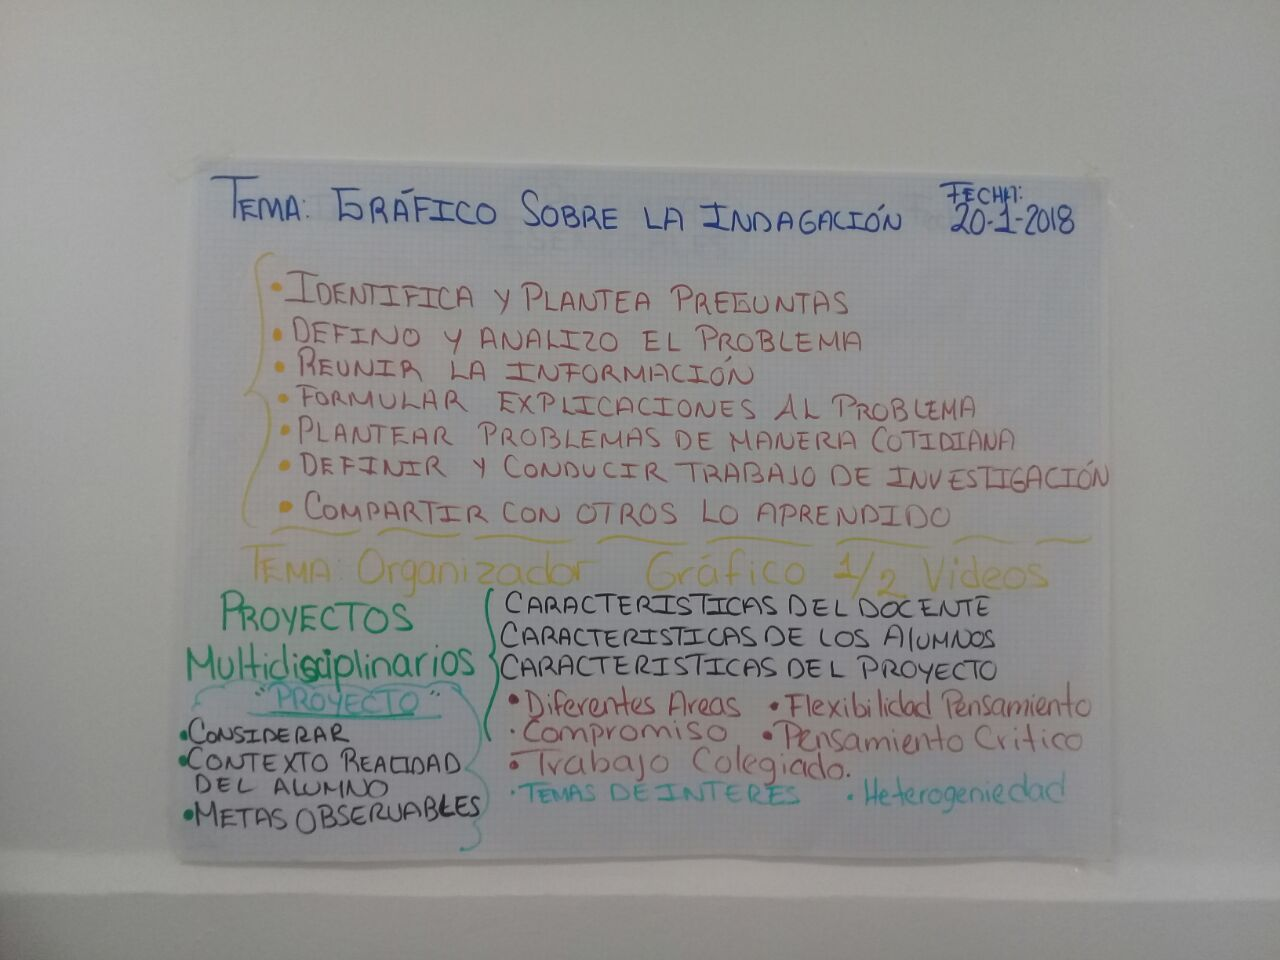 TEMA: GRÁFICO SOBRE LA INDAGACIÓN
FECHA:
20-1-2018
• IDENTIFICA Y PLANTEA PREGUNTAS
• DEFINO Y ANALIZO EL PROBLEMA
• REUNIR LA INFORMACIÓN
• FORMULAR EXPLICACIONES AL PROBLEMA
• PLANTEAR PROBLEMAS DE MANERA COTIDIANA
• DEFINIR Y CONDUCIR TRABAJO DE INVESTIGACIÓN
• COMPARTIR CON OTROS LO APRENDIDO
TEMA: Organizador Gráfico 1/2 Videos
PROYECTOS
Multidisciplinarios
"PROYECTO"
• CONSIDERAR
• CONTEXTO REALIDAD
DEL ALUMNO
• METAS OBSERVABLES
CARACTERISTICAS DEL DOCENTE
CARACTERISTICAS DE LOS AlUMNOS
CARACTERISTICAS DEL PROYECTO
• Diferentes Areas • Flexibilidad Pensamiento
• Compromiso • Pensamiento Critico
• Trabajo Colegiado.
• TEMAS DE INTERES • Heterogeniedad